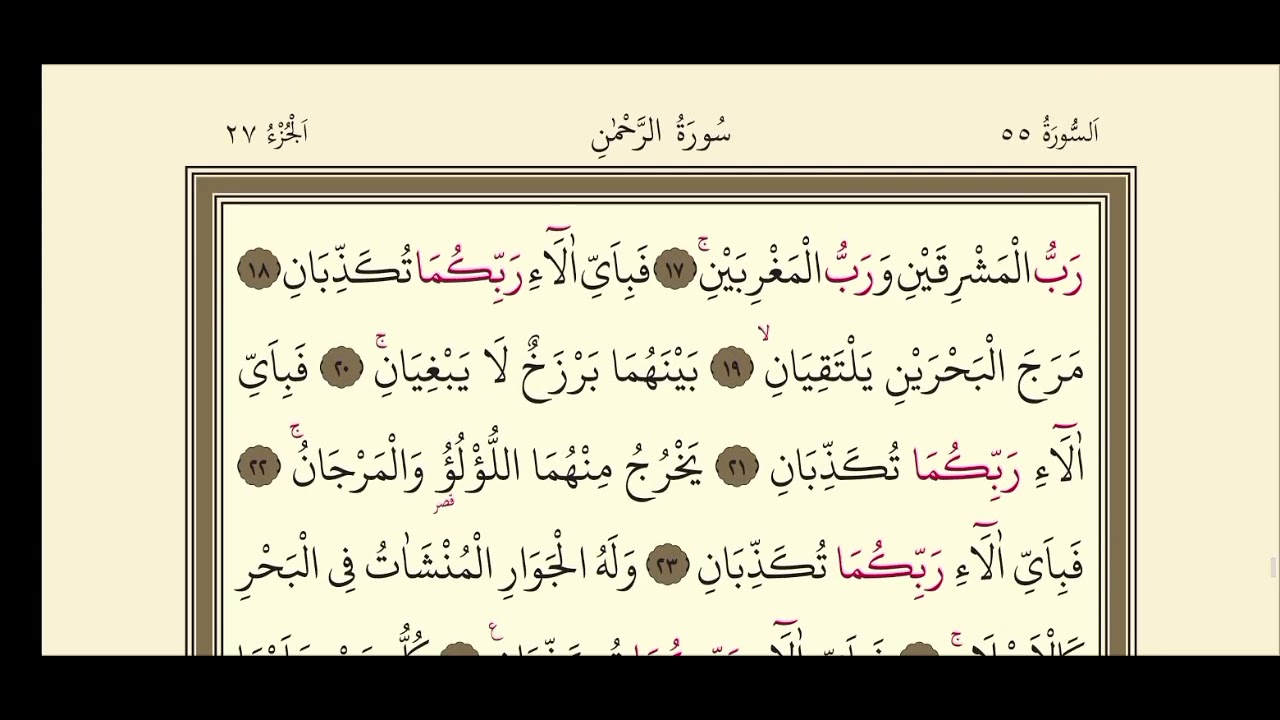 اَلسُّورَةُ ٥٥ سُورَةُ الرَّحْمٰنِ اَلْجُزْءُ ٢٧
رَبُّ الْمَشْرِقَيْنِ وَرَبُّ الْمَغْرِبَيْنِۚ ١٧ فَبِاَيِّ اٰلَٓاءِ رَبِّكُمَا تُكَذِّبَانِ ١٨
مَرَجَ الْبَحْرَيْنِ يَلْتَقِيَانِۙ ١٩ بَيْنَهُمَا بَرْزَخٌ لَا يَبْغِيَانِۚ ٢٠ فَبِاَيِّ
اٰلَٓاءِ رَبِّكُمَا تُكَذِّبَانِ ٢١ يَخْرُجُ مِنْهُمَا اللُّؤْلُؤُ وَالْمَرْجَانُۚ ٢٢
قصر
فَبِاَيِّ اٰلَٓاءِ رَبِّكُمَا تُكَذِّبَانِ ٢٣ وَلَهُ الْجَوَارِ الْمُنْشَاٰتُ فِى الْبَحْرِ